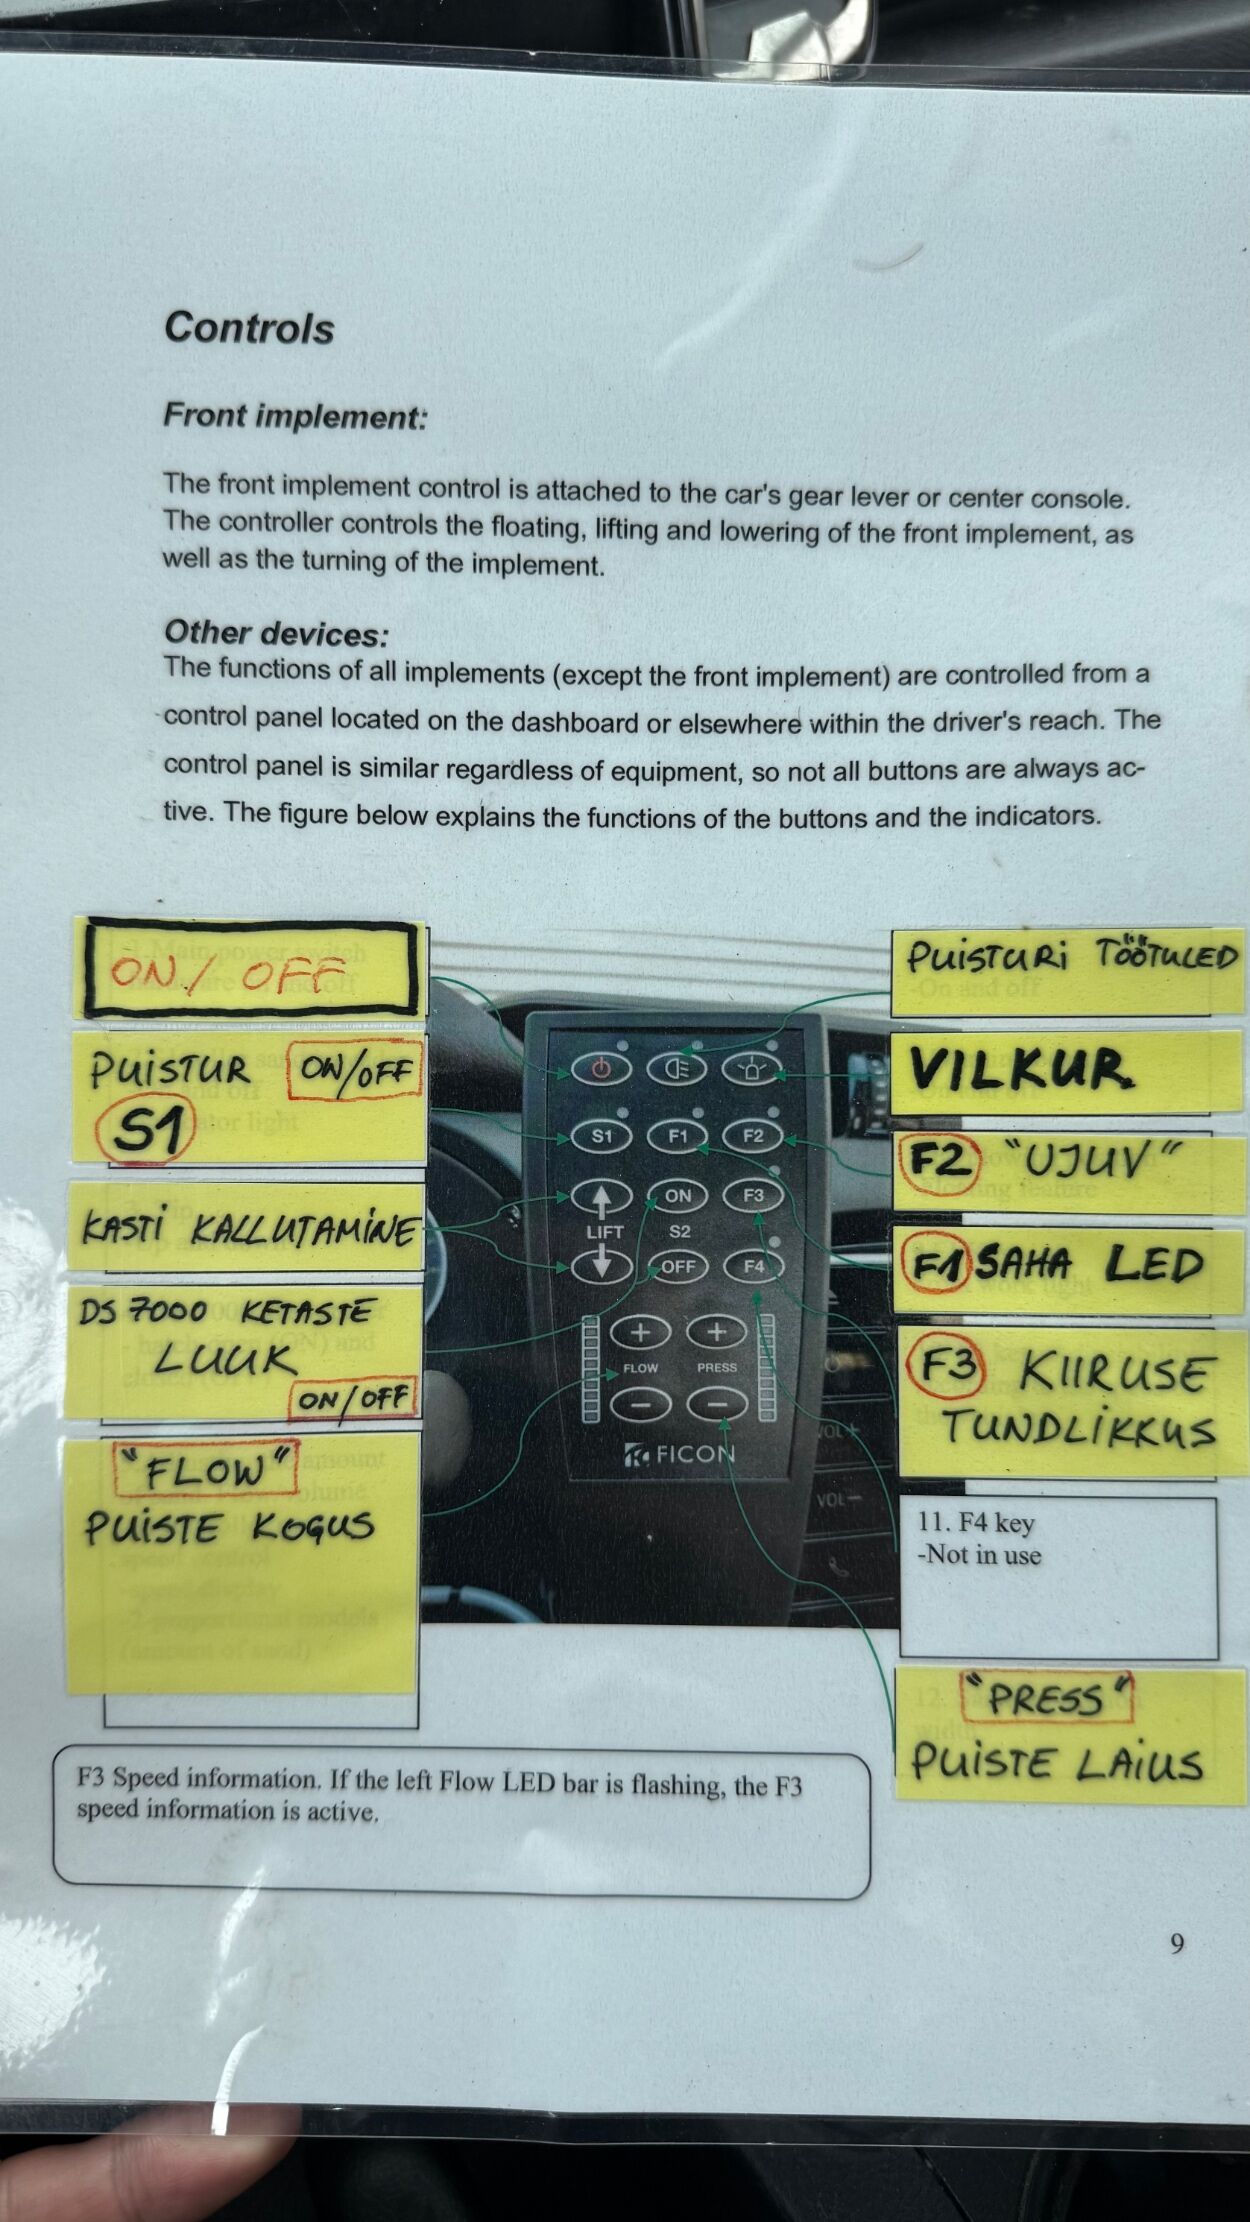 Controls
Front implement:
The front implement control is attached to the car's gear lever or center console.
The controller controls the floating, lifting and lowering of the front implement, as
well as the turning of the implement.
Other devices:
The functions of all implements (except the front implement) are controlled from a
control panel located on the dashboard or elsewhere within the driver's reach. The
control panel is similar regardless of equipment, so not all buttons are always ac-
tive. The figure below explains the functions of the buttons and the indicators.
ON/OFF
PUISTUR ON/OFF
S1
KASTI KALLUTAMINE
DS 7000 KETASTE
LUUK
ON/OFF
"FLOW"
PUISTE KOGUS
S1 F1 F2
ON F3
LIFT S2
OFF F4
+ +
FLOW PRESS
- -
FICON
VOL+
VOL-
PUISTURI TÖÖTULED
VILKUR
F2 "UJUV"
F1 SAHA LED
F3 KIIRUSE
TUNDLIKKUS
11. F4 key
-Not in use
"PRESS"
PUISTE LAIUS
F3 Speed information. If the left Flow LED bar is flashing, the F3
speed information is active.
9